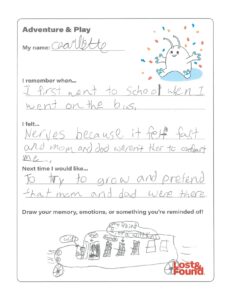 Adventure & Play
My name: Carlotte
I remember when...
I first went to School wen I
went on the bus.
I felt...
Nerves because it felt fast
and mom and dad werent ther to
me.
Next time I would like...
To try to grow and pretend
that mom and dad were there
Draw your memory, emotions, or something you're reminded of!
Lost&
Found